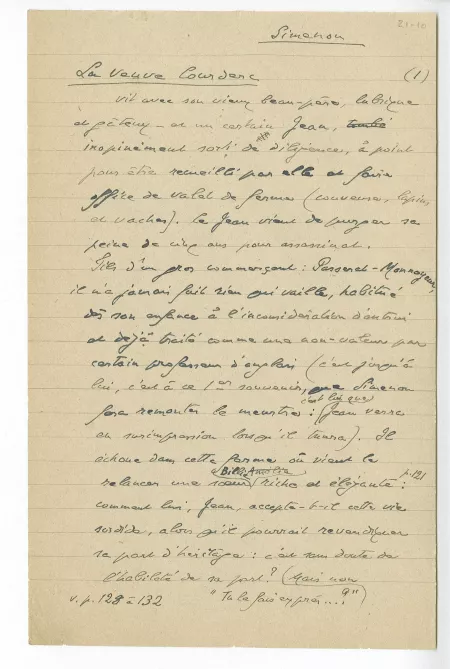 21-10
Simenon
La Veuve Couderc (1)
vit avec son vieux beau-père, lubrique
et gâteux – et un certain Jean, tombé
inopinément sorti de diligence, à point
pour être recueilli par elle et faire
office de valet de ferme (couveuse, lapins
et vaches). Ce Jean vient de purger sa
peine de cinq ans pour assassinat.
Fils d'un gros commerçant : Passerat-Monnoyeur,
il n'a jamais fait rien qui vaille, habitué
dès son enfance à l'inconsidération d'autrui
et déjà traité comme une non-valeur par
certain professeur d'anglais (c'est jusqu'à
lui, c'est à ce 1er souvenir, que Simenon
c'est lui que
fera remonter le meurtre : (Jean verra
en surimpression lorsqu'il tuera). Il
échoue dans cette ferme où vient le
p. 121
relancer une sœur riche et élégante :
comment lui, Jean, accepte-t-il cette vie
sordide, alors qu'il pourrait revendiquer
sa part d'héritage : c'est sans doute de
l'habileté de sa part ? (Mais non
v. p. 128 à 132 "Tu le fais exprès...?")